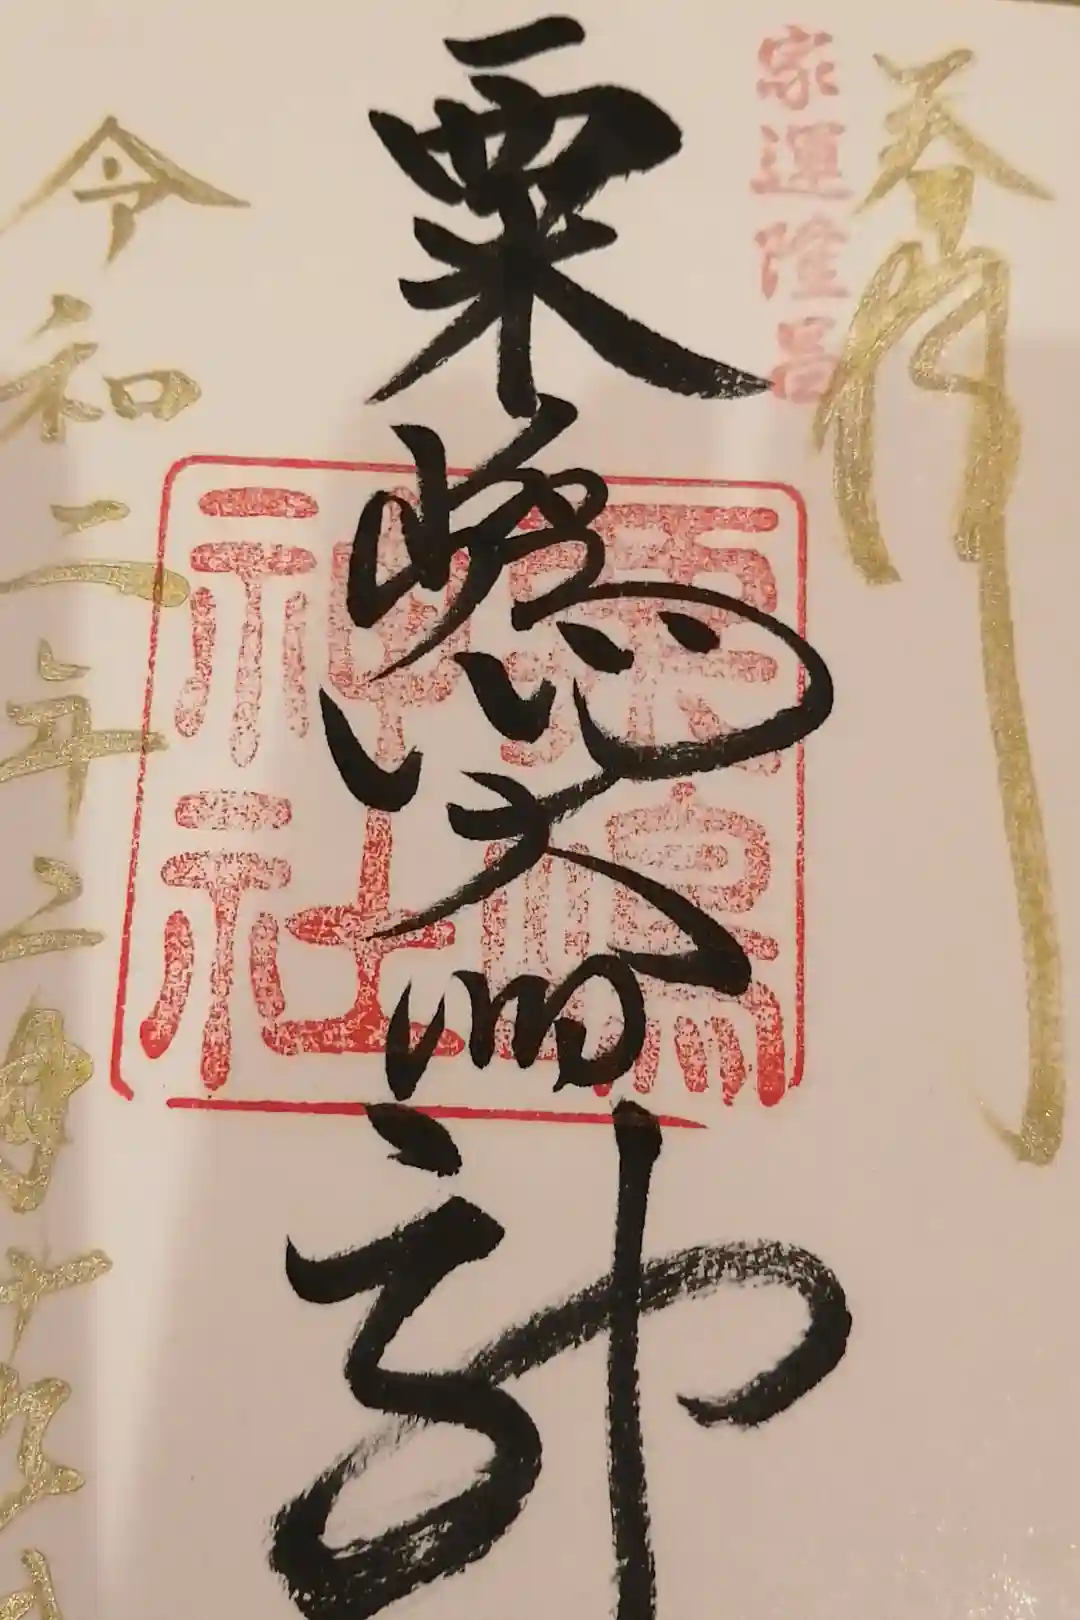 奉拝
家運隆昌
粟嶋大明神
粟嶋
神社
令和二年二月十九日